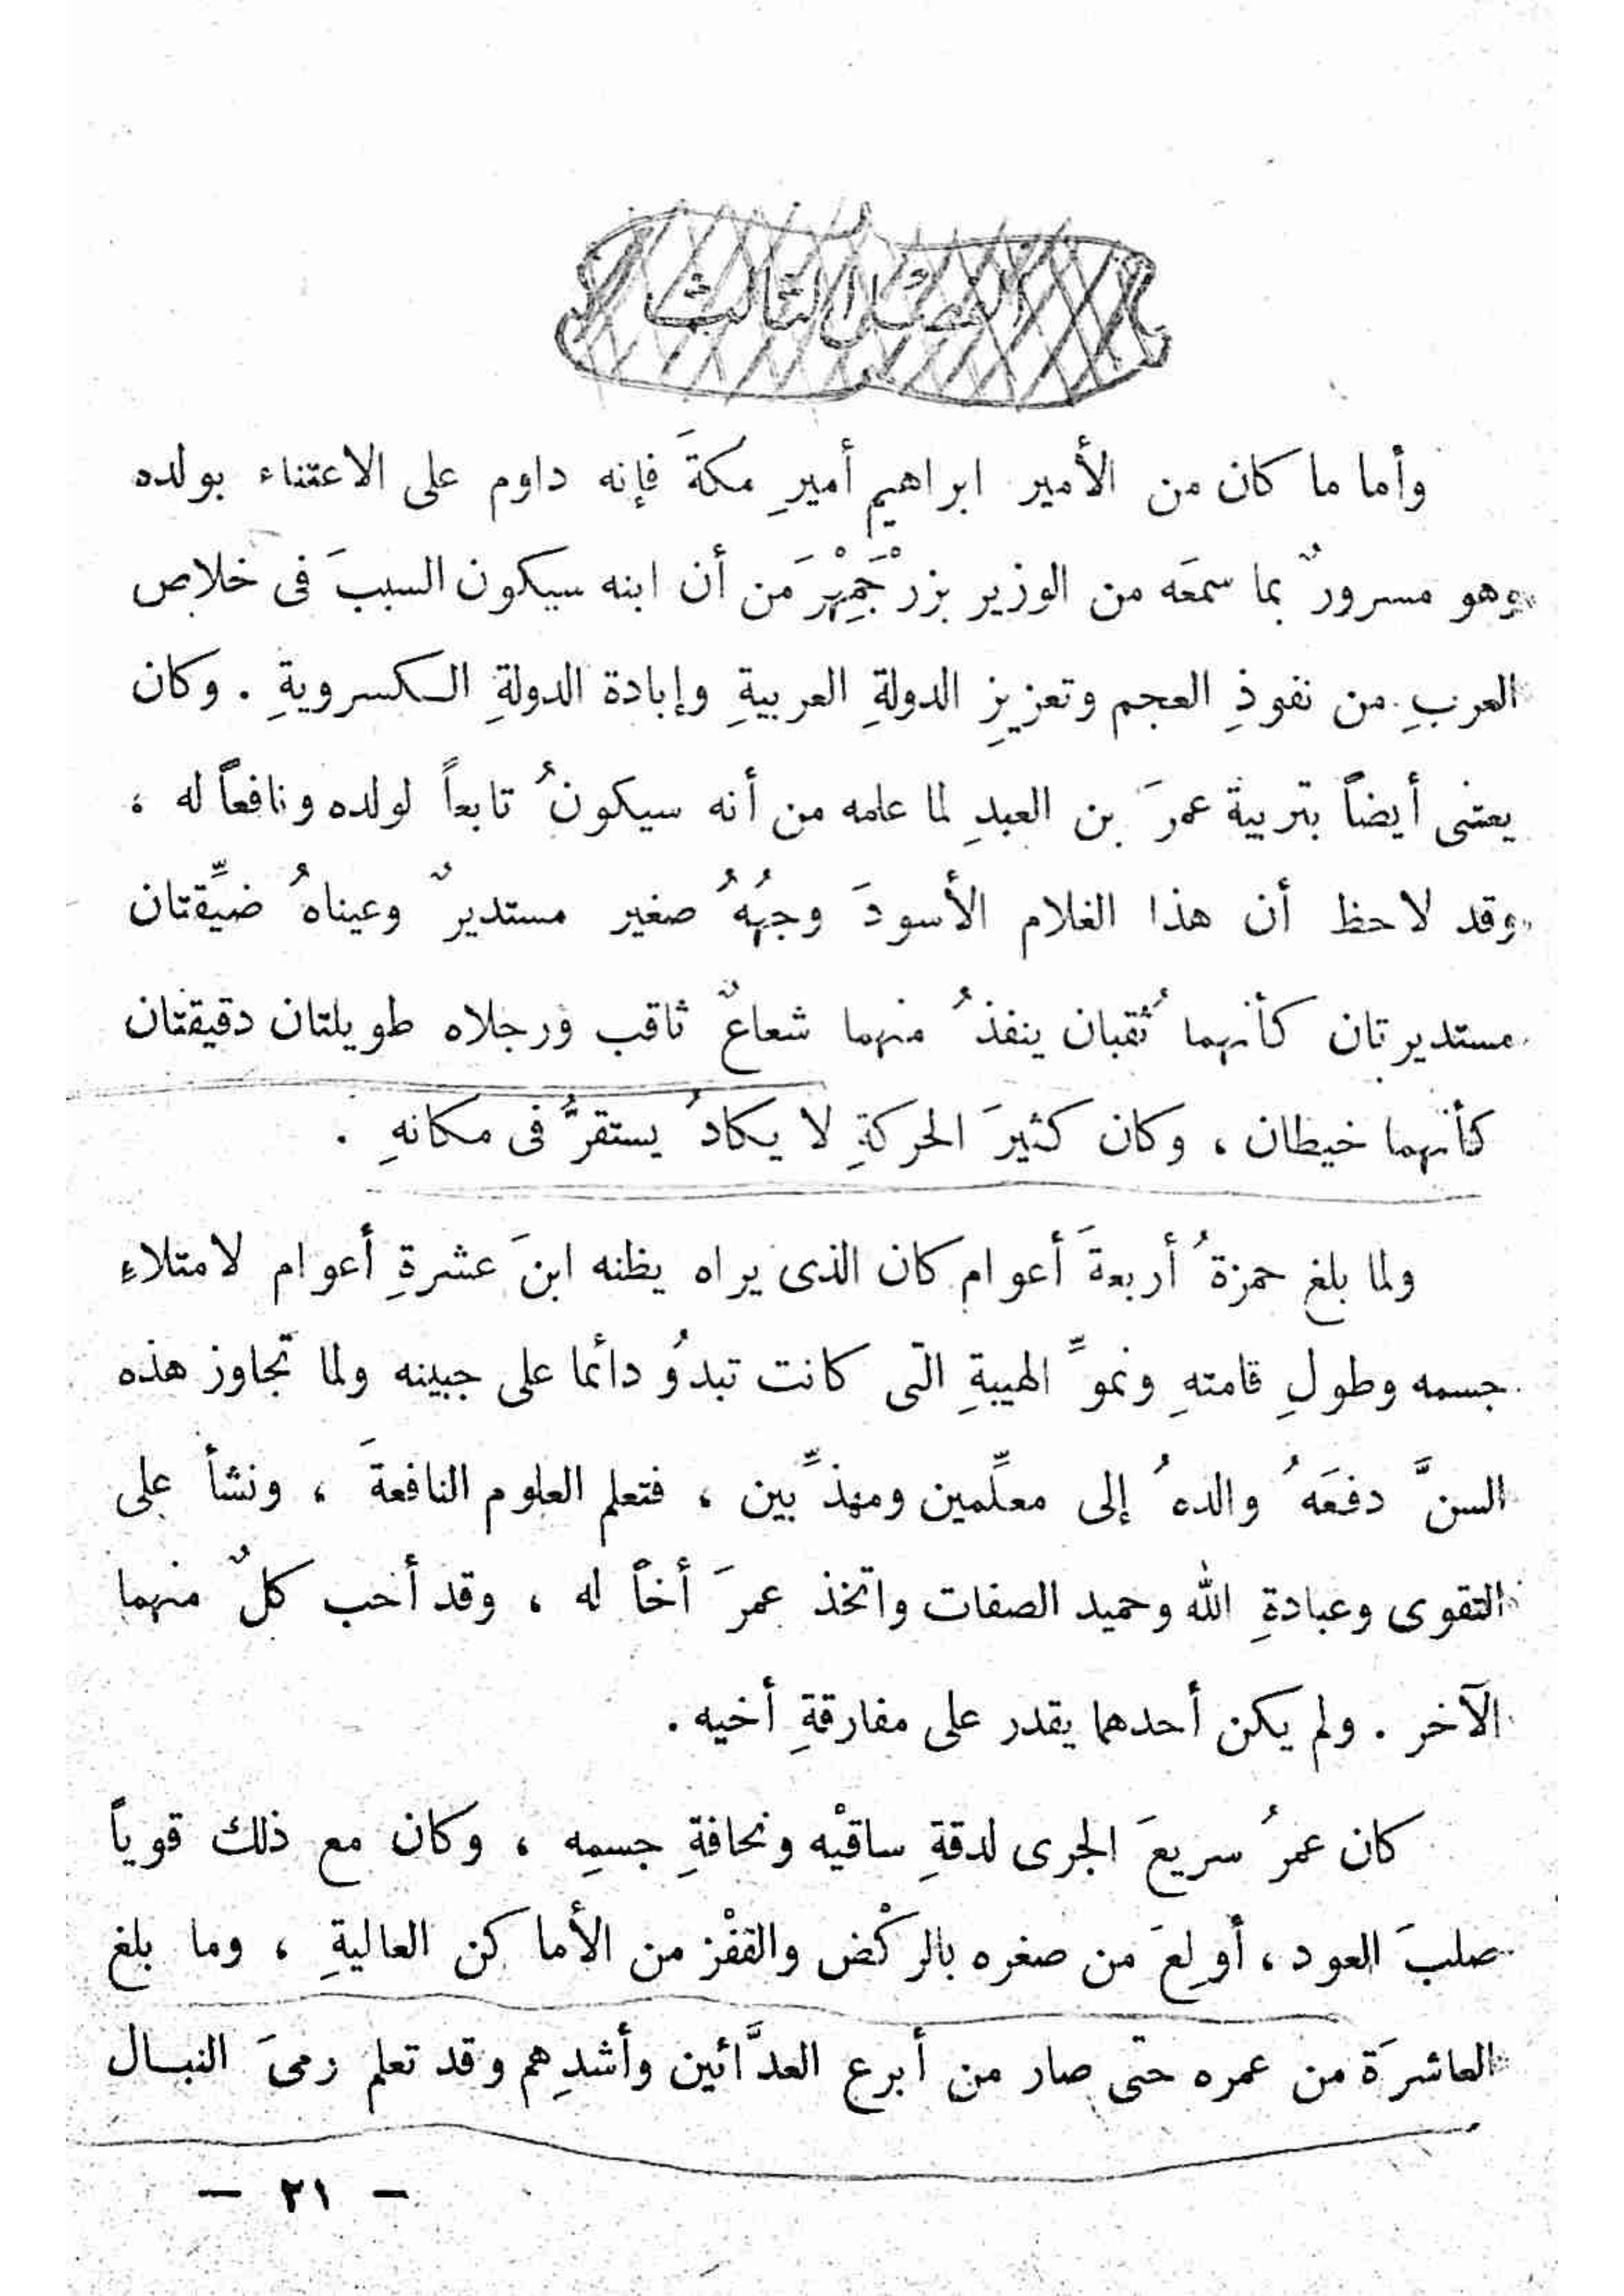 الفصل الثالث
وأما ما كان من الأمير ابراهيم أميرِ مكةَ فإنه داوم على الاعتناء بولده
وهو مسرورٌ بما سمعَه من الوزير بزرْجَمِهْرَ من أن ابنه سيكون السببَ فى خلاص
العربِ من نفوذِ العجم وتعزيزِ الدولةِ العربيةِ وإبادة الدولةِ الكسرويةِ . وكان
يعتنى أيضاً بتربية عمرَ بن العبدِ لما علمه من أنه سيكونُ تابعاً لولده ونافعاً له ،
وقد لاحظ أن هذا الغلام الأسودَ وجهُهُ صغير مستديرٌ وعيناهُ ضيِّقتان
مستديرتان كأنهما ثُقبان ينفذُ منهما شعاعٌ ثاقب ورجلاه طويلتان دقيقتان
كأنهما خيطان ، وكان كثيرَ الحركةِ لا يكادُ يستقرُّ فى مكانهِ .
ولما بلغ حمزةُ أربعةَ أعوام كان الذى يراه يظنه ابنَ عشرةِ أعوام لامتلاءِ
جسمه وطولِ قامتهِ ونموِّ الهيبةِ التى كانت تبدوُ دائما على جبينه ولما تجاوز هذه
السنَّ دفعَهُ والدهُ إلى معلِّمين ومهذِّبين ، فتعلم العلوم النافعةَ ، ونشأ على
التقوى وعبادةِ الله وحميد الصفات واتخذ عمرَ أخاً له ، وقد أحب كلٌ منهما
الآخر . ولم يكن أحدهما يقدر على مفارقةِ أخيه .
كان عمرُ سريعَ الجرى لدقةِ ساقيْه ونحافةِ جسمِه ، وكان مع ذلك قوياً
صلبَ العود ، أولِعَ من صغره بالركْض والقفْز من الأماكن العاليةِ ، وما بلغ
العاشرَة من عمره حتى صار من أبرع العدَّائين وأشدِهم وقد تعلم رمىَ النبال
— ٢١ —